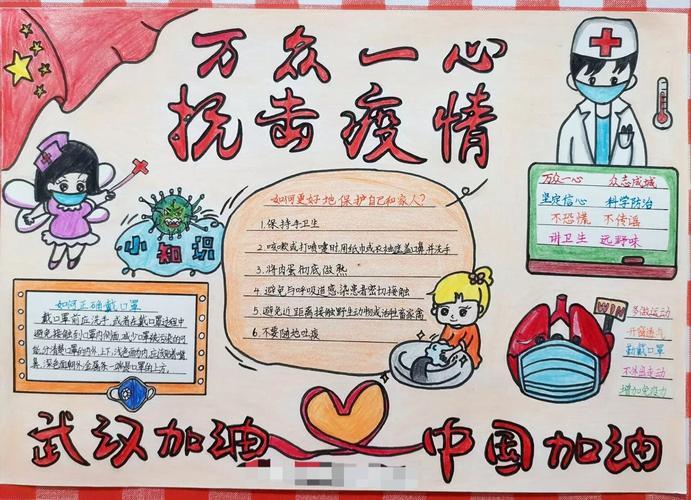 万众一心
抗击疫情
万众一心 众志成城
坚定信心 科学防治
不恐慌 不传谣
讲卫生 远野味
小知识
如何更好地保护自己和家人?
1.保持手卫生
2.咳嗽或打喷嚏时用纸巾或衣袖遮盖口鼻并洗手
3.将肉蛋彻底做熟
4.避免与呼吸道感染患者密切接触
5.避免近距离接触野生动物或活牲畜家禽
6.不要随地吐痰
如何正确戴口罩
戴口罩前应洗手,或者在戴口罩过程中
避免接触到口罩内侧面,减少口罩被污染的可
能,分清楚口罩的内外上下,浅色面为内,应该贴着嘴
鼻,深色面朝外,金属条一端是口罩的上方。
WIN
多做运动
开窗通气
勤戴口罩
增加免疫力
武汉加油 中国加油